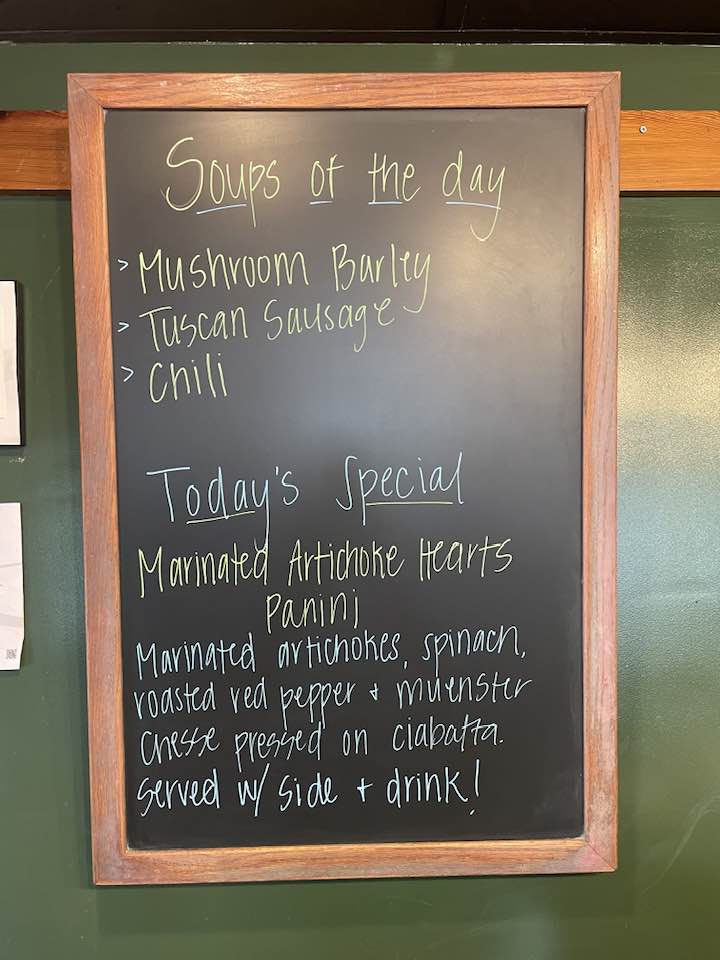 Soups of the day
> Mushroom Barley
> Tuscan Sausage
> Chili
Today's Special
Marinated Artichoke Hearts
Panini
Marinated artichokes, spinach,
roasted red pepper + muenster
chesse pressed on ciabatta.
served w/ side + drink!